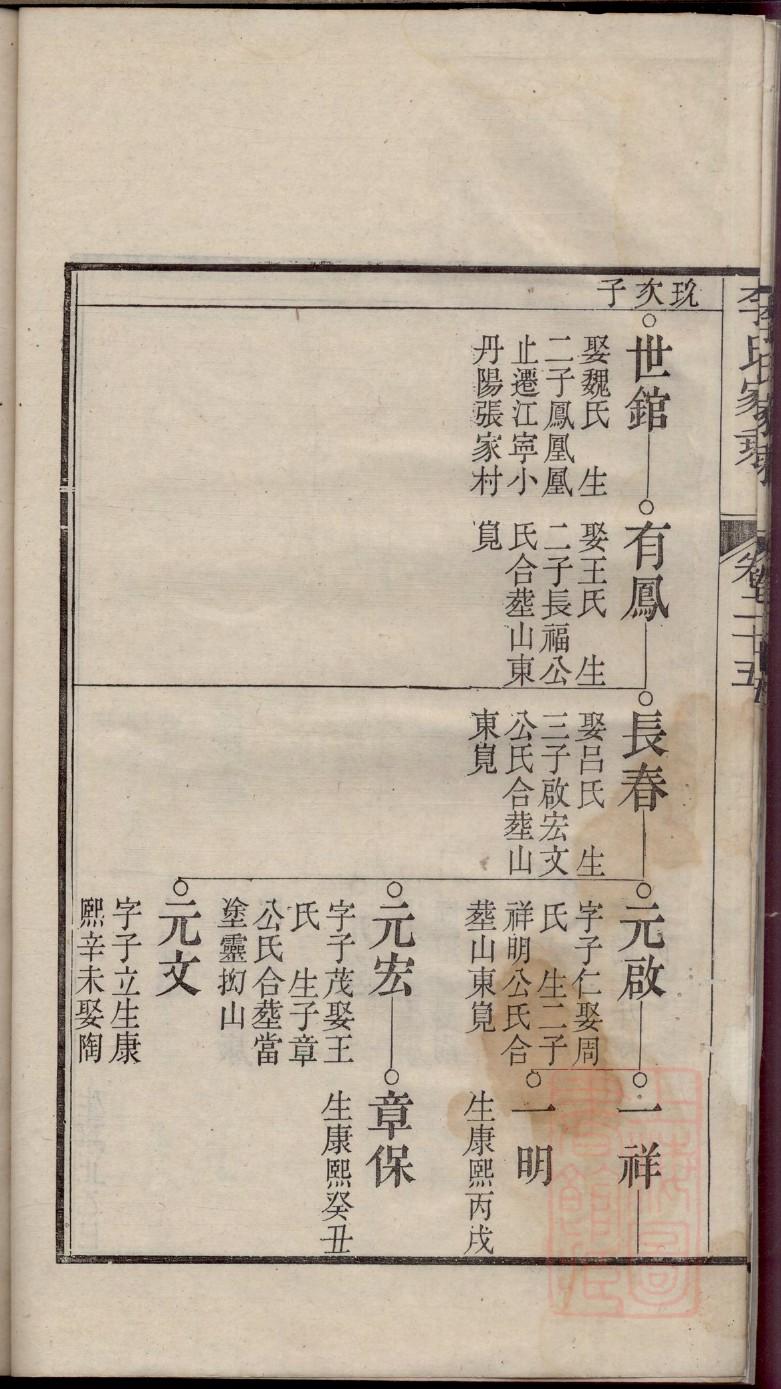 李氏家乘
卷二十五
玧次子
世錧
娶魏氏　生
二子鳳凰凰
止遷江寧小
丹陽張家村
有鳳
娶王氏　生
二子長福公
氏合塟山東
㠓
長春
娶呂氏　生
三子啟宏文
公氏合塟山
東㠓
元啟
字子仁娶周
氏　生二子
祥明公氏合
塟山東㠓
一祥
一明
生康熙丙戌
元宏
字子茂娶王
氏　生子章
公氏合塟當
塗靈抝山
章保
生康熙癸丑
元文
字子立生康
熙辛未娶陶